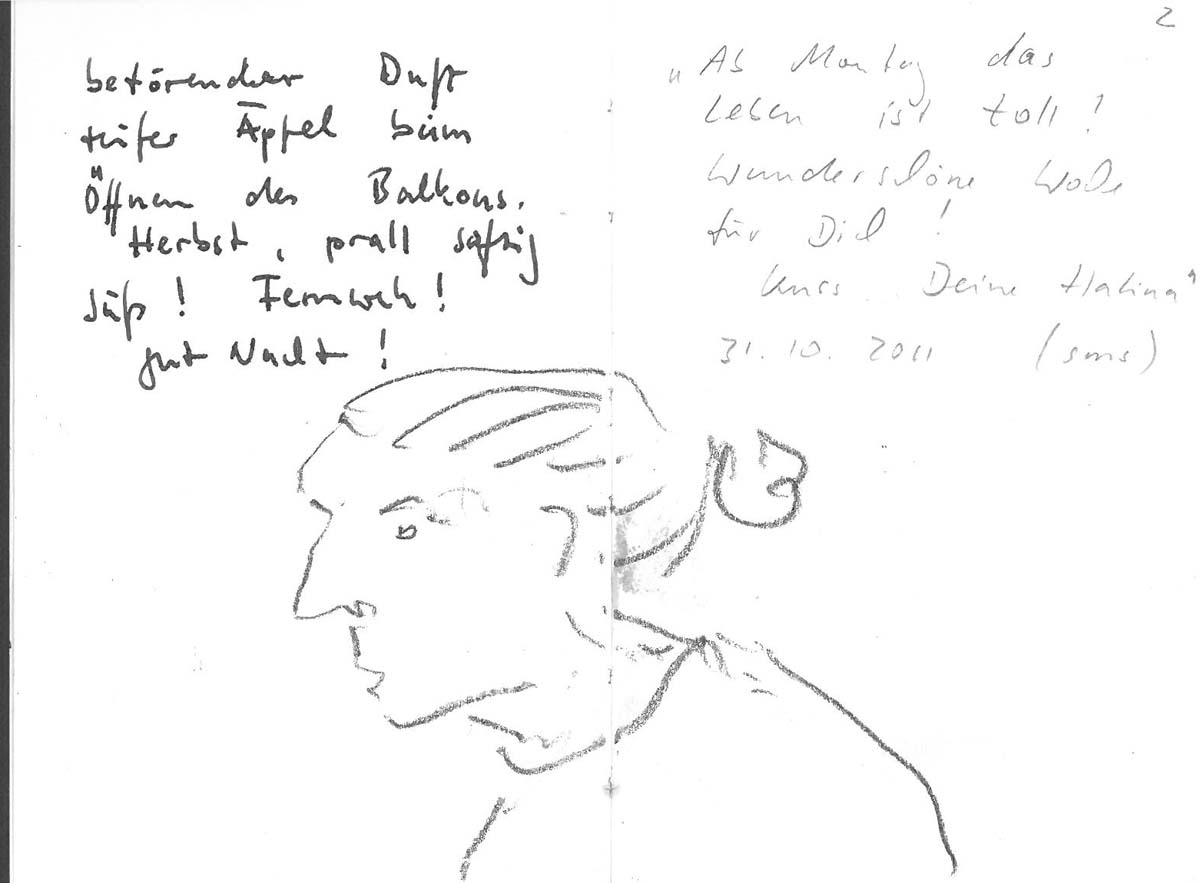 betörender Duft
reifer Äpfel beim
Öffnen des Balkons.
Herbst, prall saftig
süß! Fernweh!
gut Nacht!
2
"Ab Montag das
Leben ist toll!
Wunderschöne Woche
für Dich!
Kuss Deine Halina"
31.10.2011 (sms)